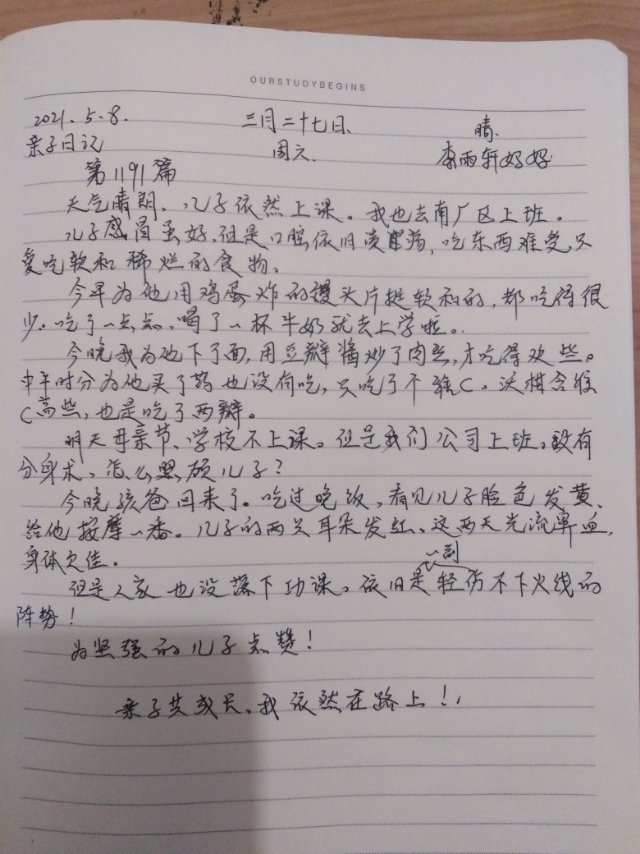 OURSTUDYBEGINS
2021.5.8. 三月二十七日. 晴.
亲子日记 周六. 李雨轩妈妈
第1191篇
天气晴朗、儿子依然上课。我也去南厂区上班。
儿子感冒虽好,但是口腔依旧溃疡,吃东西难受,只
爱吃软和稀烂的食物。
今早为他用鸡蛋炸的馒头片挺软和的,都吃得很
少。吃了一点点、喝了一杯牛奶就去上学啦。
今晚我为他下了面,用豆瓣酱炒了肉丝,才吃得欢些。
中午时分为他买了药也没有吃,只吃了个维C。沃柑含维
C高些,也是吃了两瓣。
明天母亲节、学校不上课。但是我们公司上班。没有
分身术、怎么照顾儿子?
今晚孩爸回来了。吃过晚饭,看见儿子脸色发黄、
给他按摩一番。儿子的两只耳朵发红、这两天光流鼻血,
身体欠佳。
但是人家也没落下功课。依旧是一副轻伤不下火线的
阵势!
为坚强的儿子点赞!
亲子共成长、我依然在路上!